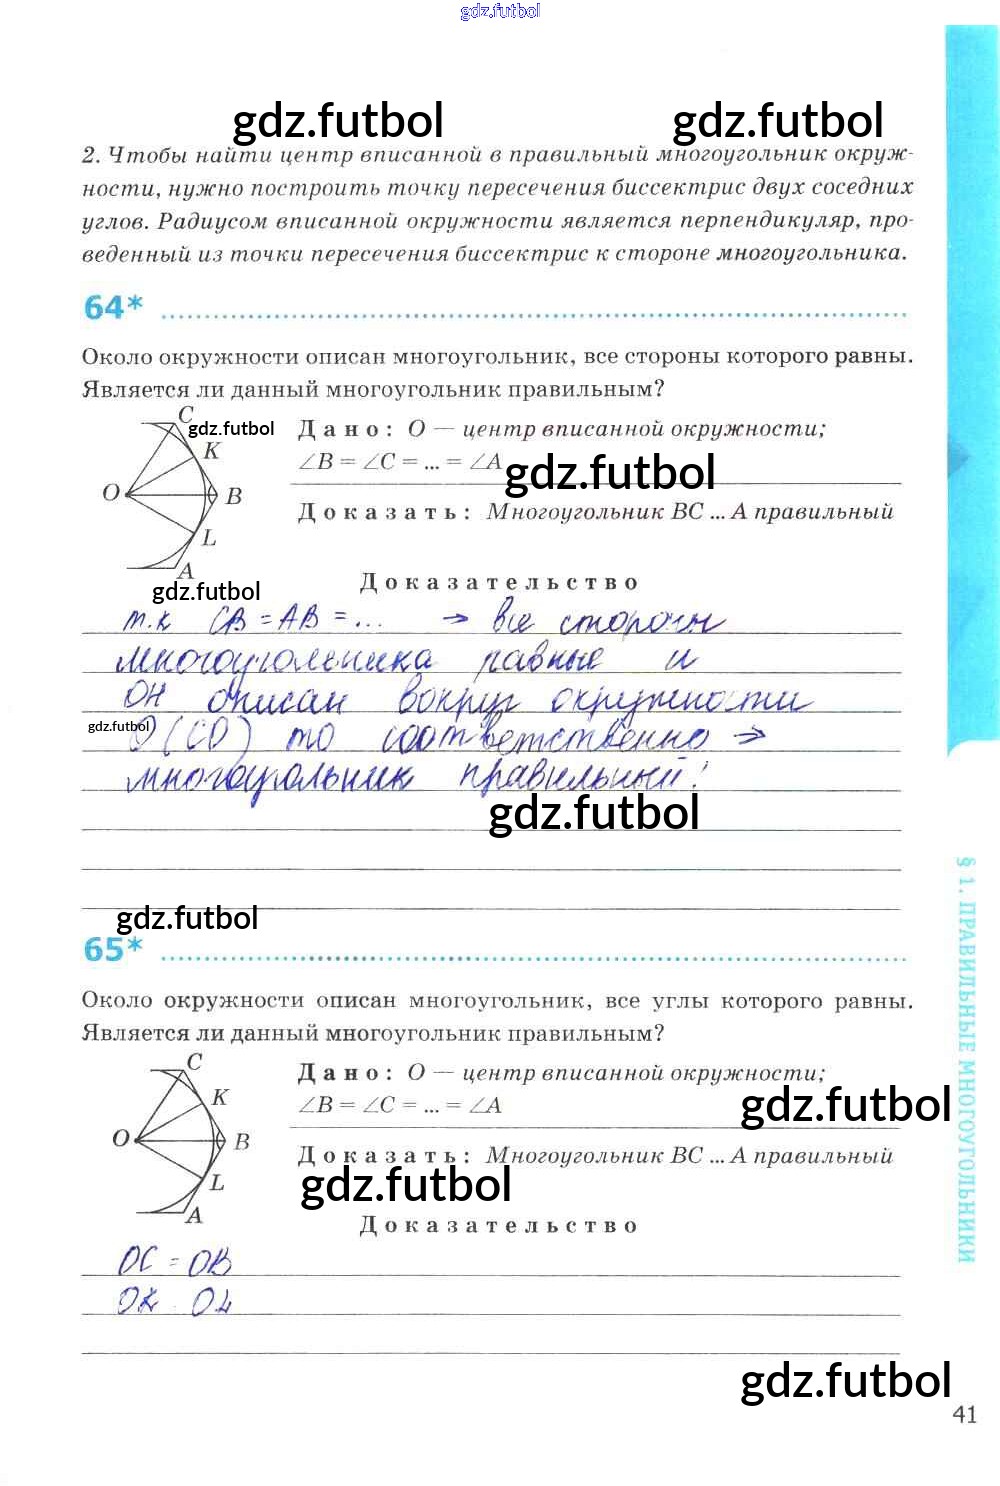 gdz.futbol
gdz.futbol gdz.futbol
2. Чтобы найти центр вписанной в правильный многоугольник окруж-
ности, нужно построить точку пересечения биссектрис двух соседних
углов. Радиусом вписанной окружности является перпендикуляр, про-
веденный из точки пересечения биссектрис к стороне многоугольника.
64*
Около окружности описан многоугольник, все стороны которого равны.
Является ли данный многоугольник правильным?
C
gdz.futbol
K
O
B
L
A
Дано: O — центр вписанной окружности;
∠B = ∠C = ... = ∠A
gdz.futbol
Доказать: Многоугольник BC ... A правильный
gdz.futbol
Доказательство
т.к CB = AB = ... → все стороны
многоугольника равные и
он описан вокруг окружности
gdz.futbol
O (CD) то соответственно ⇒
многоугольник правильный!
gdz.futbol
gdz.futbol
65*
Около окружности описан многоугольник, все углы которого равны.
Является ли данный многоугольник правильным?
C
K
O
B
L
A
Дано: O — центр вписанной окружности;
∠B = ∠C = ... = ∠A
gdz.futbol
Доказать: Многоугольник BC ... A правильный
gdz.futbol
Доказательство
OC = OB
OK OL
gdz.futbol
41
§ 1. ПРАВИЛЬНЫЕ МНОГОУГОЛЬНИКИ